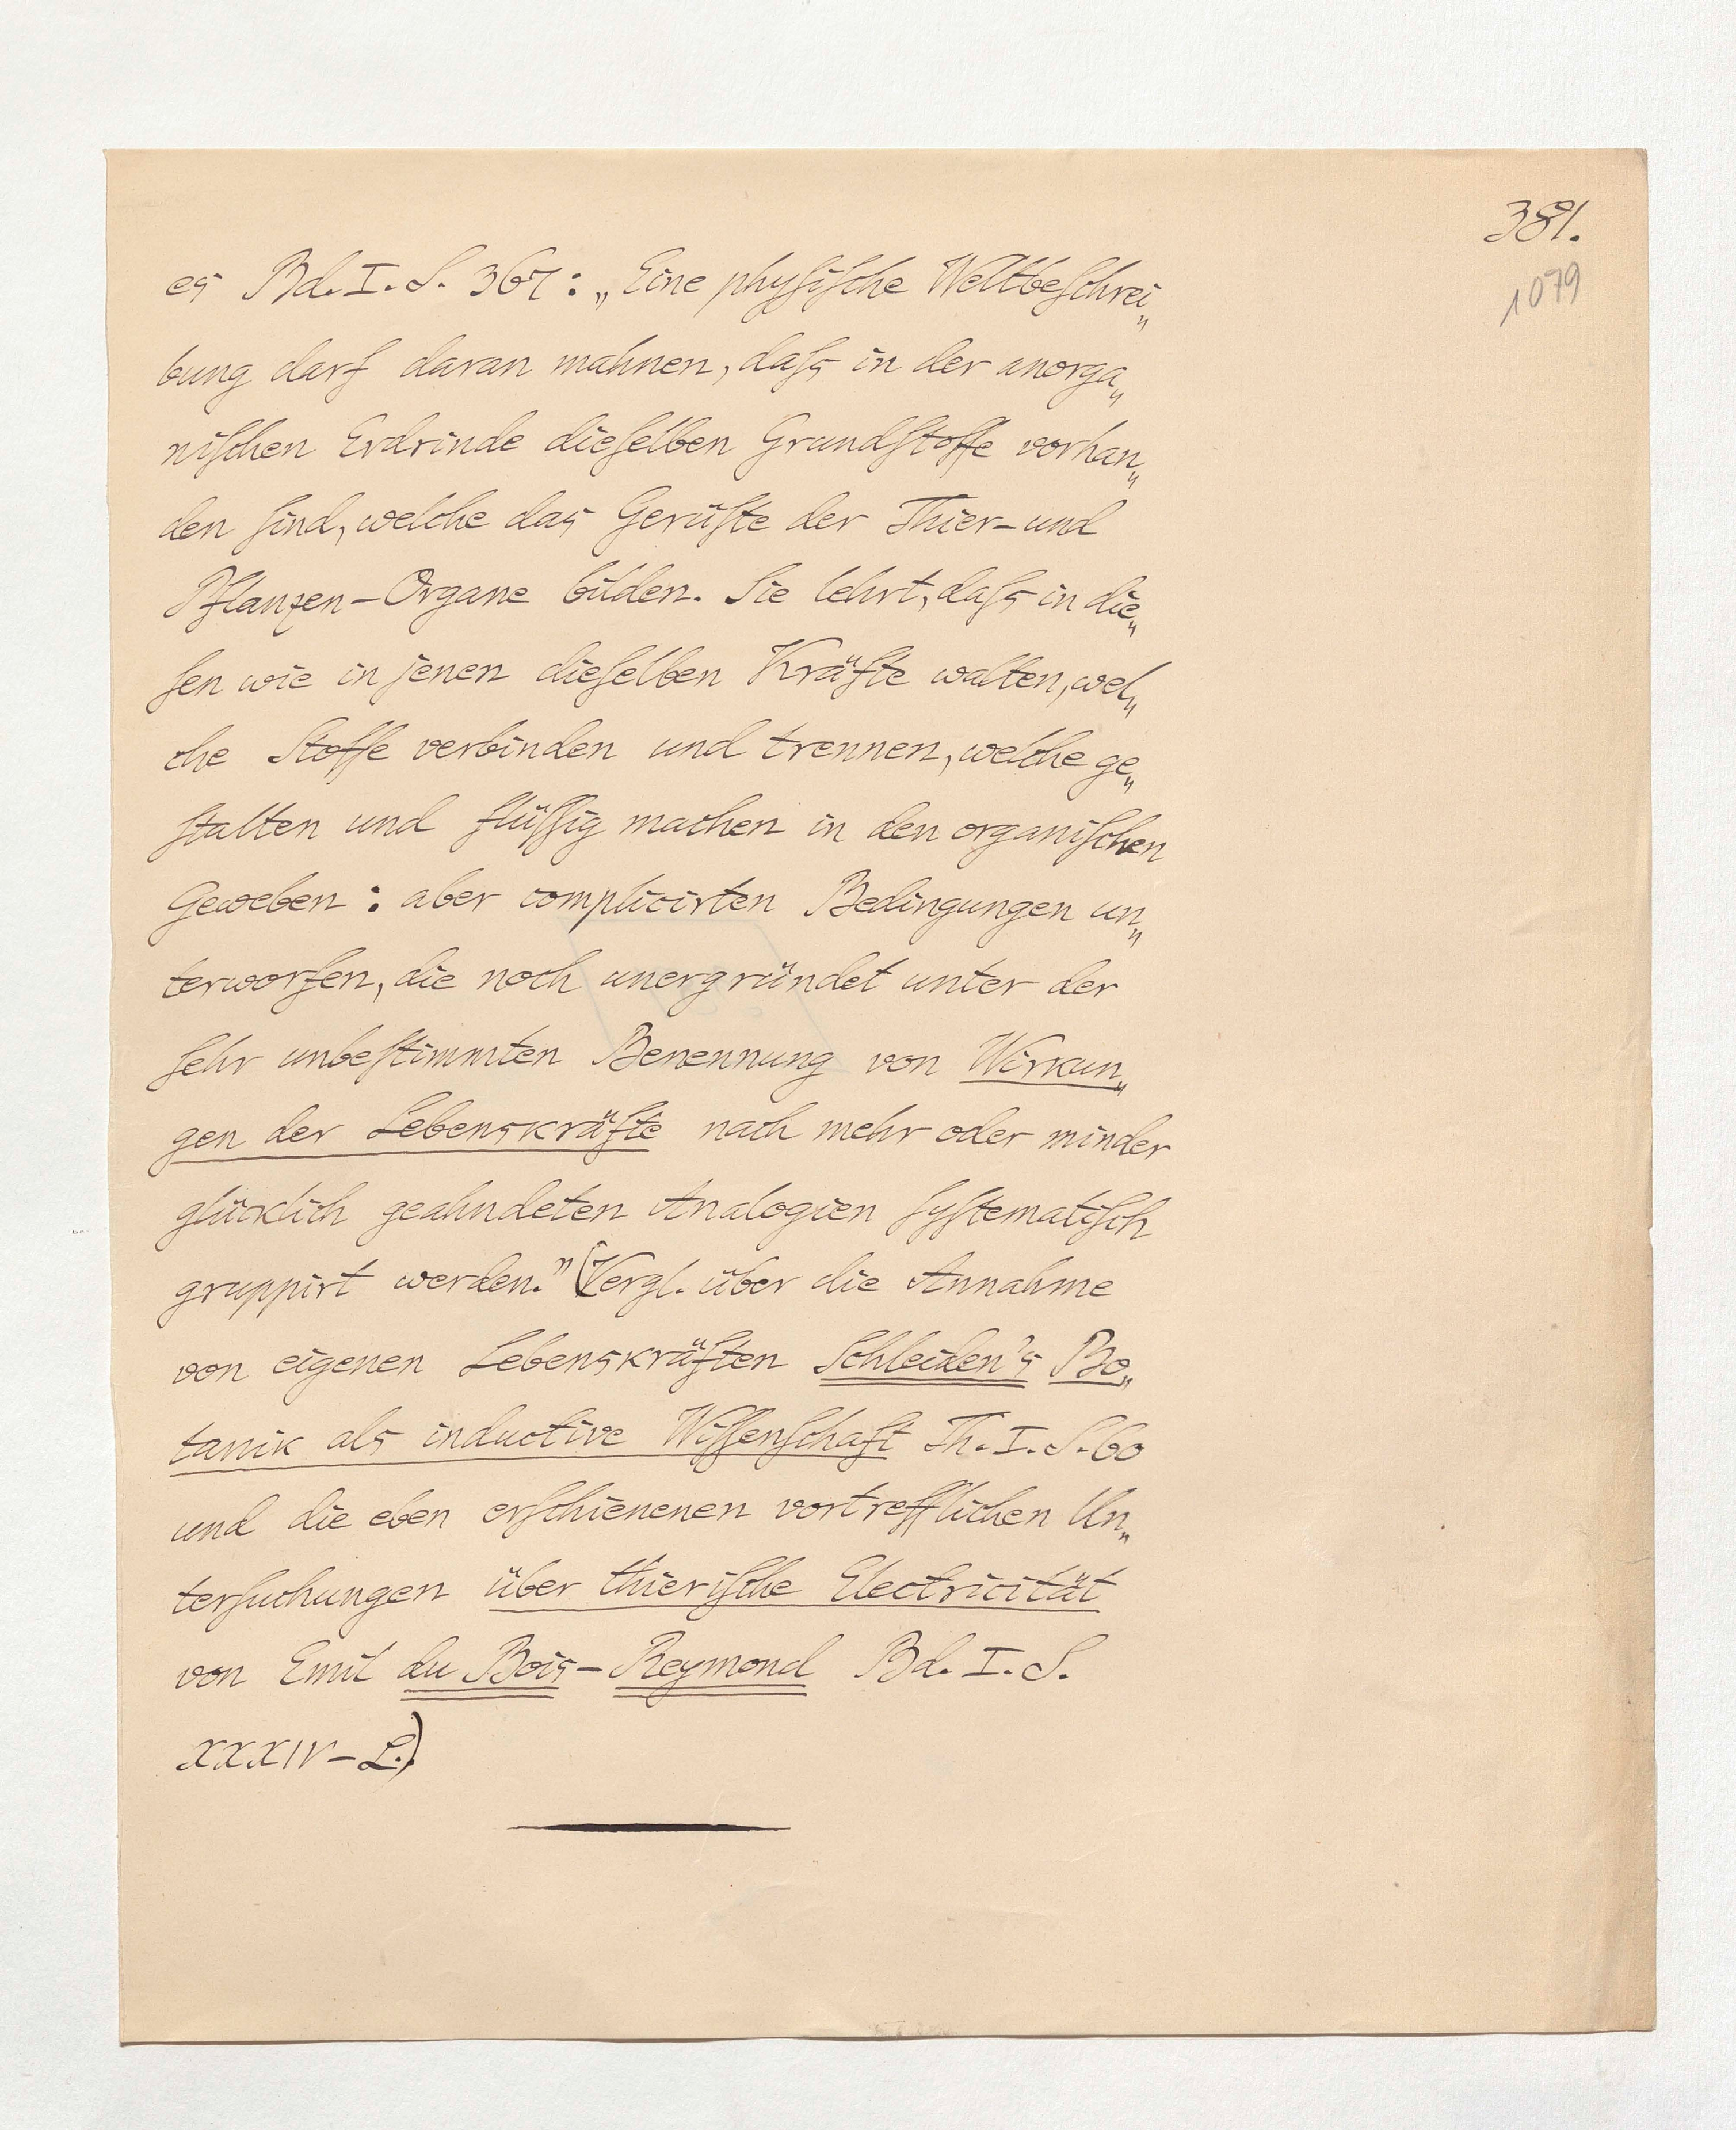 381.
1079
es Bd. I. S. 367: „Eine physische Weltbeschrei„
bung darf daran mahnen, daſs in der anorga„
nischen Erdrinde dieselben Grundstoffe vorhan„
den sind, welche das Gerüste der Thier- und
Pflanzen-Organe bilden. Sie lehrt, daſs in die„
sen wie in jenen dieselben Kräfte walten, wel„
che Stoffe verbinden und trennen, welche ge„
stalten und flüssig machen in den organischen
Geweben: aber complicirten Bedingungen un„
terworfen, die noch unergründet unter der
sehr unbestimmten Benennung von Wirkun„
gen der Lebenskräfte nach mehr oder minder
glücklich geahndeten Analogien systematisch
gruppirt werden.” (Vergl. über die Annahme
von eigenen Lebenskräften Schleiden's Bo„
tanik als inductive Wissenschaft Th. I. S. 60
und die eben erschienenen vortrefflichen Un„
tersuchungen über thierische Electricität
von Emil du Bois-Reymond Bd. I. S.
XXXIV-L.)